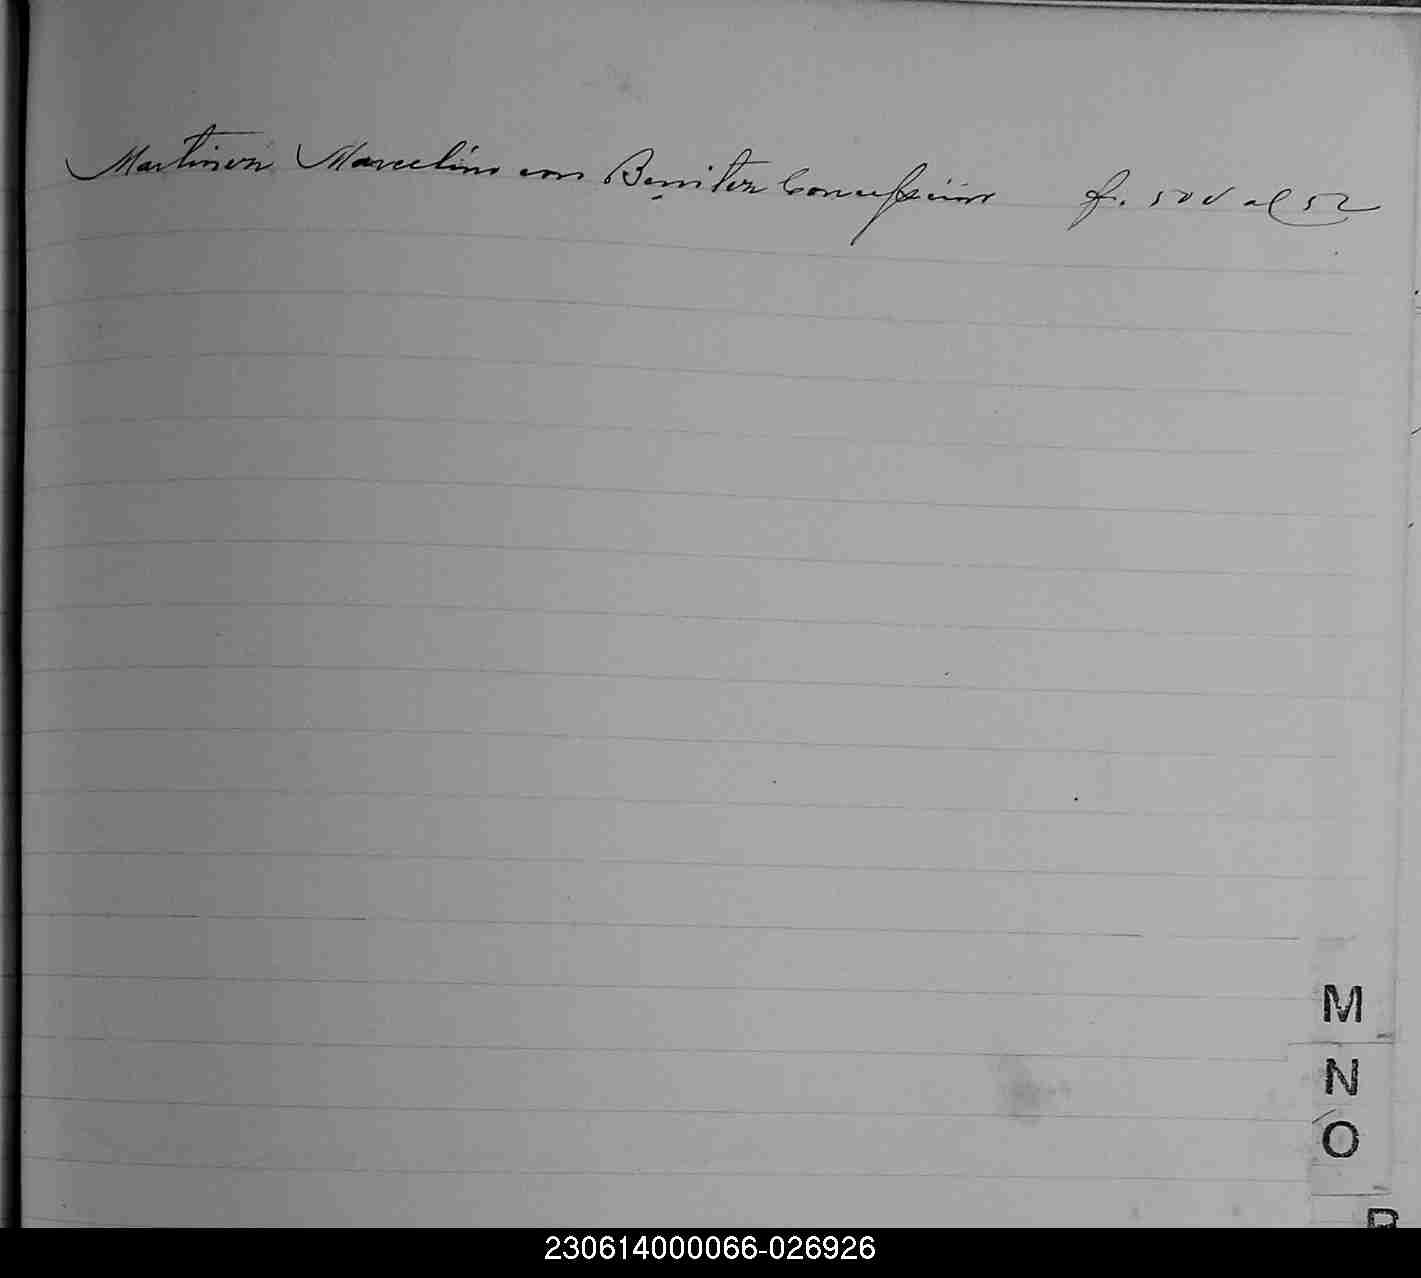 Martinez Marcelino con Benitez Concepcion f. 50 v al 52
M
N
O
P
230614000066-026926